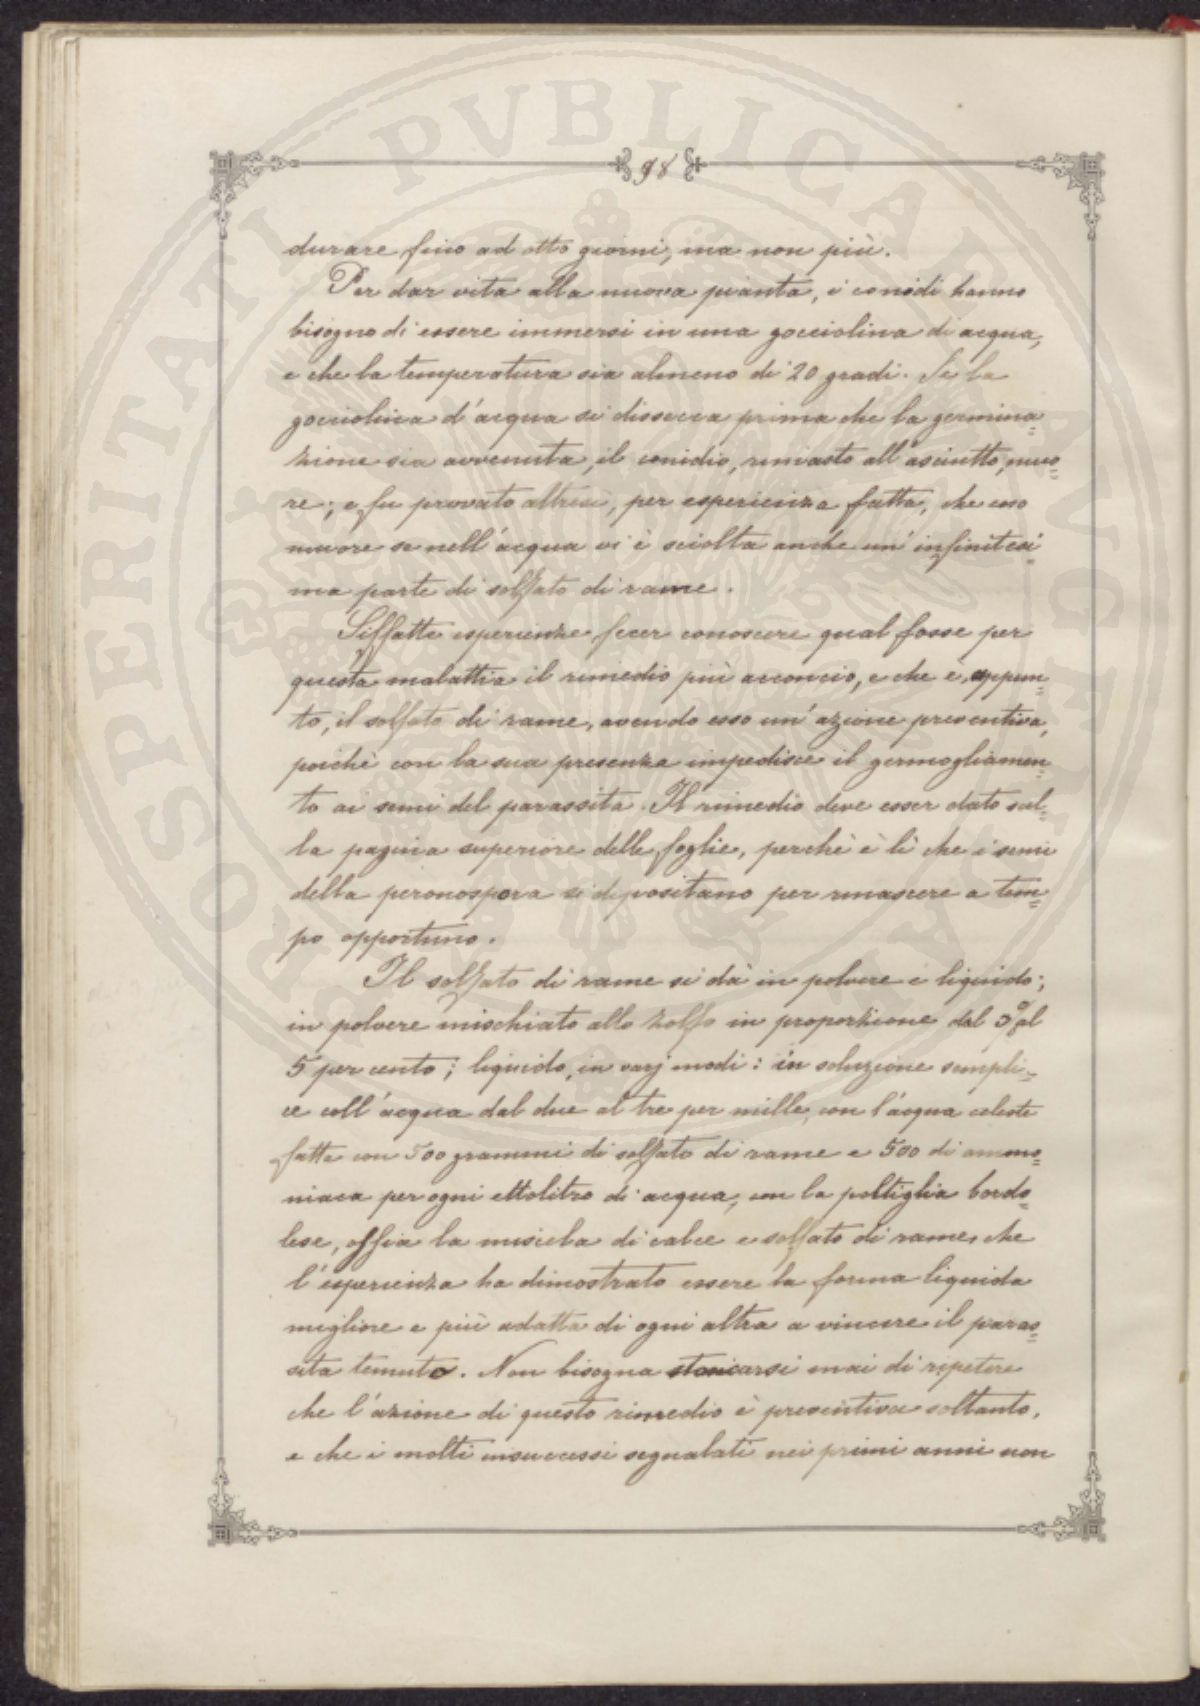 98
durare fino ad otto giorni, ma non più.
Per dar vita alla nuova pianta, i conidi hanno
bisogno di essere immersi in una gocciolina di acqua,
e che la temperatura sia almeno di 20 gradi. Se la
gocciolina d'acqua si dissecca prima che la germina=
zione sia avvenuta, il conidio, rimasto all'asciutto, muo=
re; e fu provato altresì, per esperienza fatta, che esso
muore se nell'acqua vi è sciolta anche un'infinitesi=
ma parte di solfato di rame.
Siffatte esperienze fecer conoscere qual fosse per
questa malattia il rimedio più acconcio, e che è, appun=
to, il solfato di rame, avendo esso un'azione preventiva,
poichè con la sua presenza impedisce il germogliamen=
to ai semi del parassita. Il rimedio deve esser dato sul=
la pagina superiore delle foglie, perchè è lì che i semi
della peronospora si depositano per rinascere a tem=
po opportuno.
Il solfato di rame si dà in polvere e liquido;
in polvere mischiato allo zolfo in proporzione dal 3 al
5 per cento; liquido, in varj modi: in soluzione sempli=
ce coll'acqua dal due al tre per mille, con l'acqua celeste
fatta con 500 grammi di solfato di rame e 500 di ammo=
niaca per ogni ettolitro di acqua, con la poltiglia bordo=
lese, ossia la miscela di calce e solfato di rame, che
l'esperienza ha dimostrato essere la forma liquida
migliore e più adatta di ogni altra a vincere il paras=
sita temuto. Non bisogna stancarsi mai di ripetere
che l'azione di questo rimedio è preventiva soltanto,
e che i molti insuccessi segnalati nei primi anni non
PROSPERITATI PVBLICAE AVGENDAE